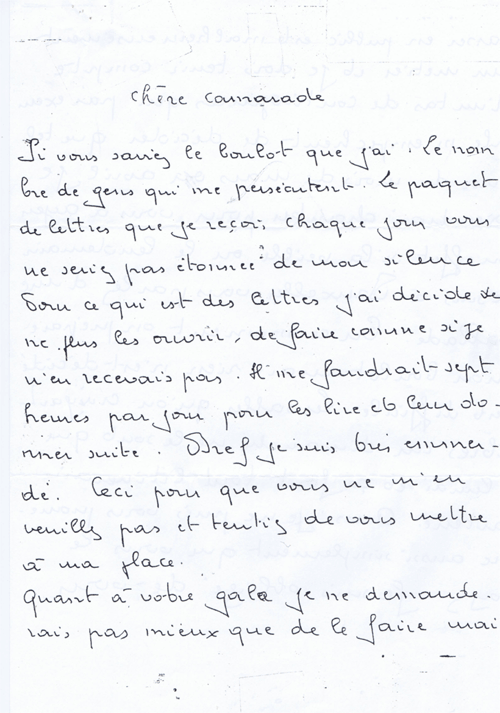 chère camarade
Si vous saviez le boulot que j'ai. Le nom
bre de gens qui me persécutent. Le paquet
de lettres que je reçois, chaque jour vous
ne seriez pas étonnée de mon silence
Pour ce qui est des lettres j'ai décidé de
ne plus les ouvrir, de faire comme si je
n'en recevais pas. Il me faudrait sept
heures par jour pour les lire et leur do-
nner suite. Bref je suis très emmer
dé. Ceci pour que vous ne m'en
veuillez pas et tentiez de vous mettre
à ma place.
Quant à votre gala je ne demande-
rais pas mieux que de le faire mai